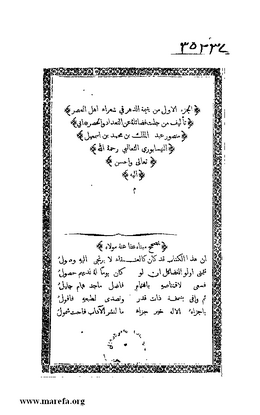 ٣٥٢٢٤
الجزء الاول من يتيمة الدهر في شعراء اهل العصر
تأليف من جلت فضائله عن التعداد والحصر ابي
منصور عبد الملك بن محمد بن اسمعيل
النيسابوري الثعالبي رحمه الله
تعالى واحسن
اليه
م
ان هذا الكتاب قد كان كالعنقاء لا يرتجى اليه وصول
تمنى اولو الفضائل ان لو كان يوما له لديهم حصول
فسعى لاقتناصه باهتمام فاضل ماجد همام جليل
ثم وافى بسمعة ذات قدر وتصدى لطبعه
الاله خير جزاء
www.marefa.org